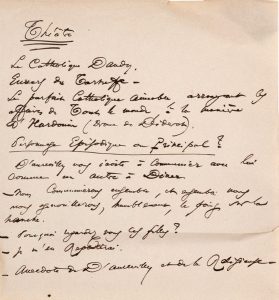 Théâtre
Le Catholique Dandy.
Envers de Tartuffe. —
Le parfait Catholique aimable arrangeant les
affaires de Tout le monde à la manière
d'Hardouin (Drame de Diderot)
Personnage Episodique ou Principal ?
D'aurevilly vous invite à communier avec lui
comme un autre à Dîner
— Nous communierons ensemble, et ensemble nous
nous agenouillerons, humblement, le poing sur la
hanche.
— Pourquoi regardez vous ces filles ?
— je m'en
— Anecdote de D'aurevilly et de la Religieuse —